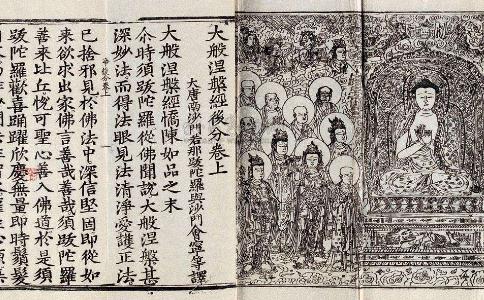 大般涅槃經後分卷上
大唐南沙門若那跋陀羅與沙門會寧等譯
大般涅槃經憍陳如品之末
尒時須跋陀羅從佛聞說大般涅槃甚
深妙法而得法眼見法清淨愛護正法
已捨邪見於佛法中深信堅固即從如
來欲求出家佛言善哉善哉須跋陀羅
善來比丘悅可聖心善入佛道於是須
跋陀羅歡喜踊躍欣慶無量即時鬚髮